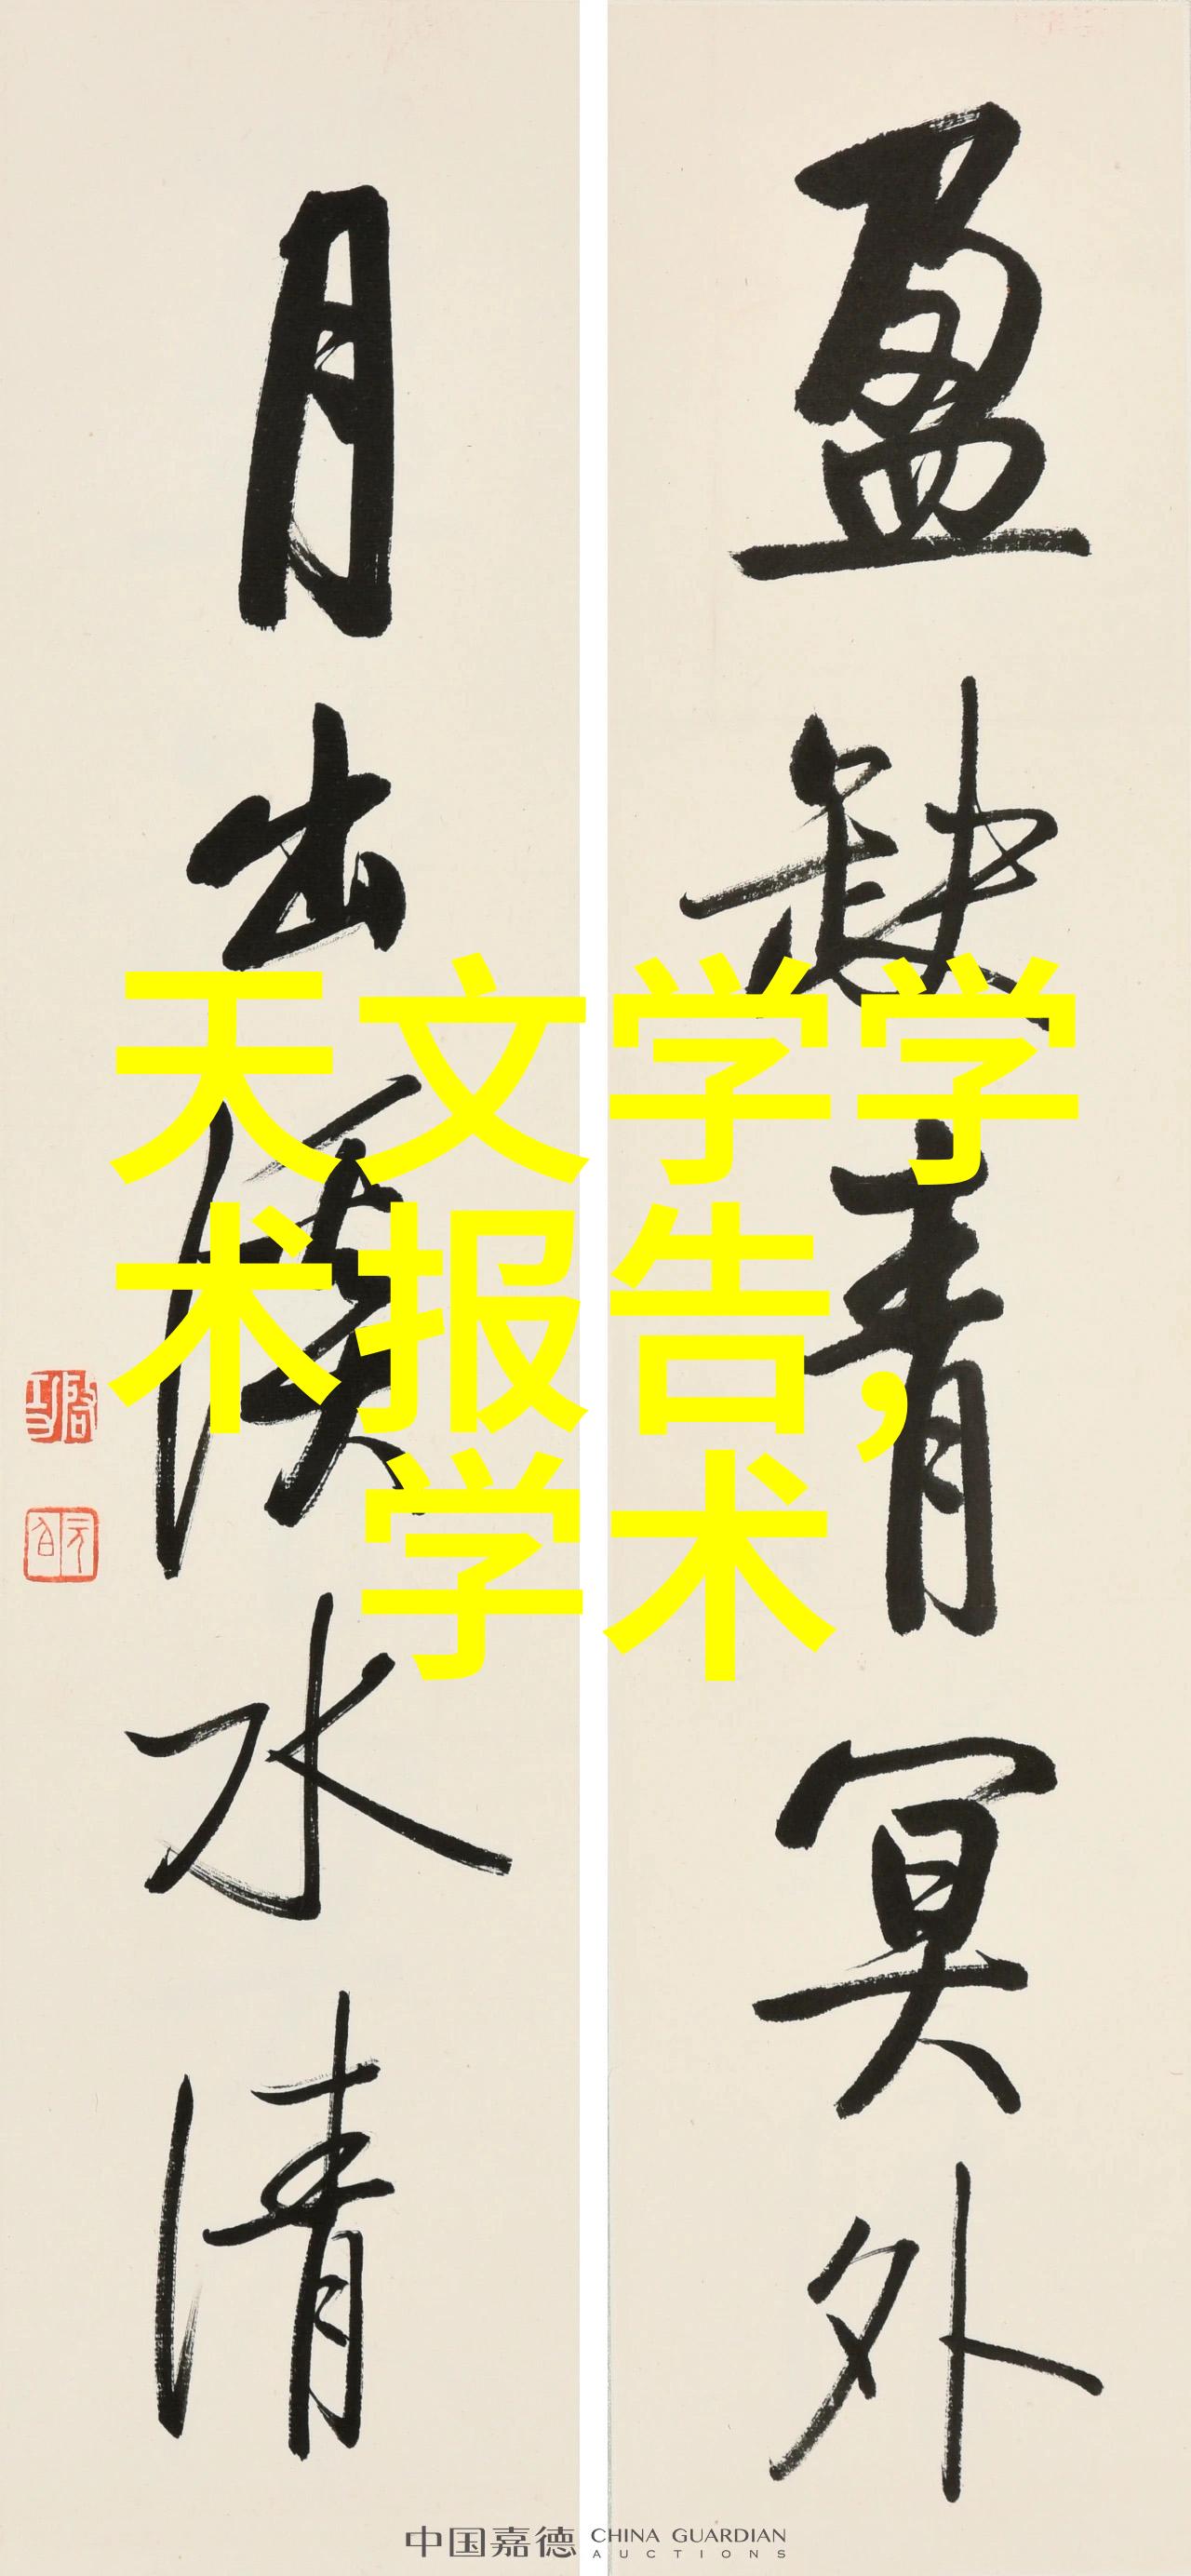 盈缺青冥外
月出溪水清
启功
元白
天文学学
术报告,
学术
中国嘉德 CHINA GUARDIAN
AUCTIONS